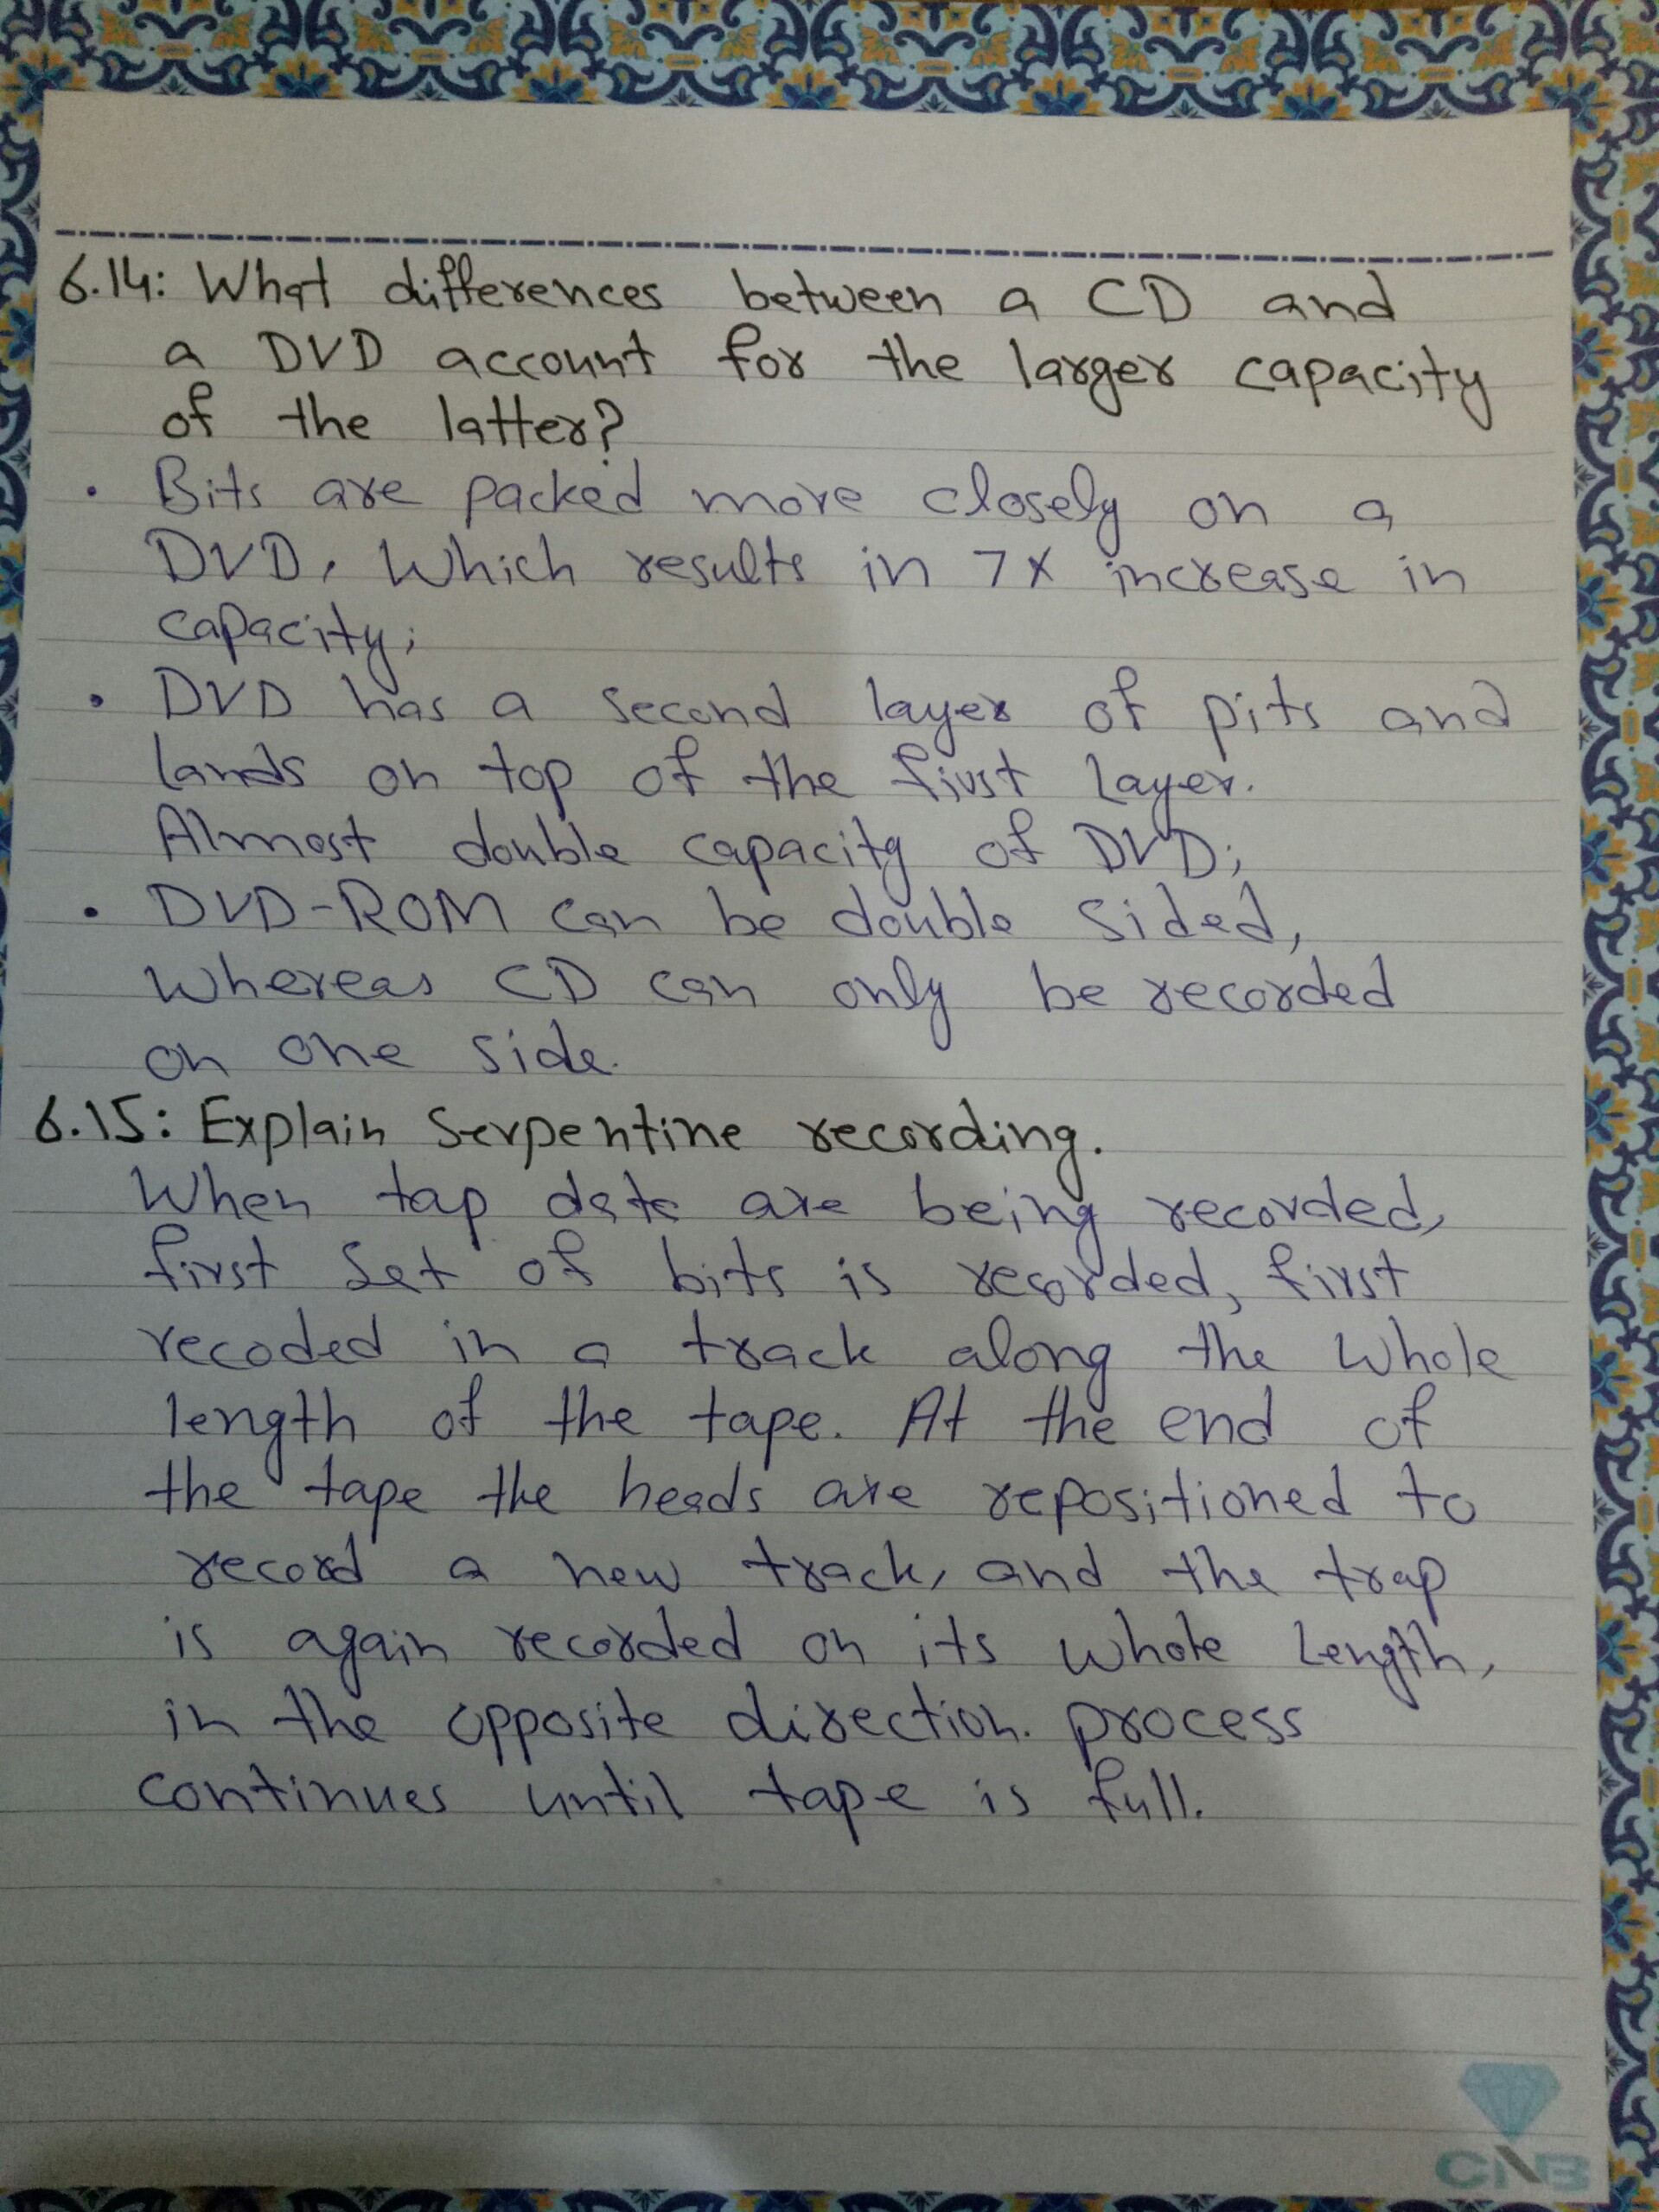 6.14: What differences between a CD and
a DVD account for the larger capacity
of the latter?
• Bits are packed more closely on a
DVD, Which results in 7x increase in
capacity;
• DVD has a second layer of pits and
lands on top of the first layer.
Almost double capacity of DVD;
• DVD-ROM can be double sided,
whereas CD can only be recorded
on one side.
6.15: Explain Serpentine recording.
When tap data are being recorded,
first set of bits is recorded, first
recoded in a track along the whole
length of the tape. At the end of
the tape the heads are repositioned to
record a new track, and the trap
is again recorded on its whole length,
in the opposite direction. process
continues until tape is full.
CNB